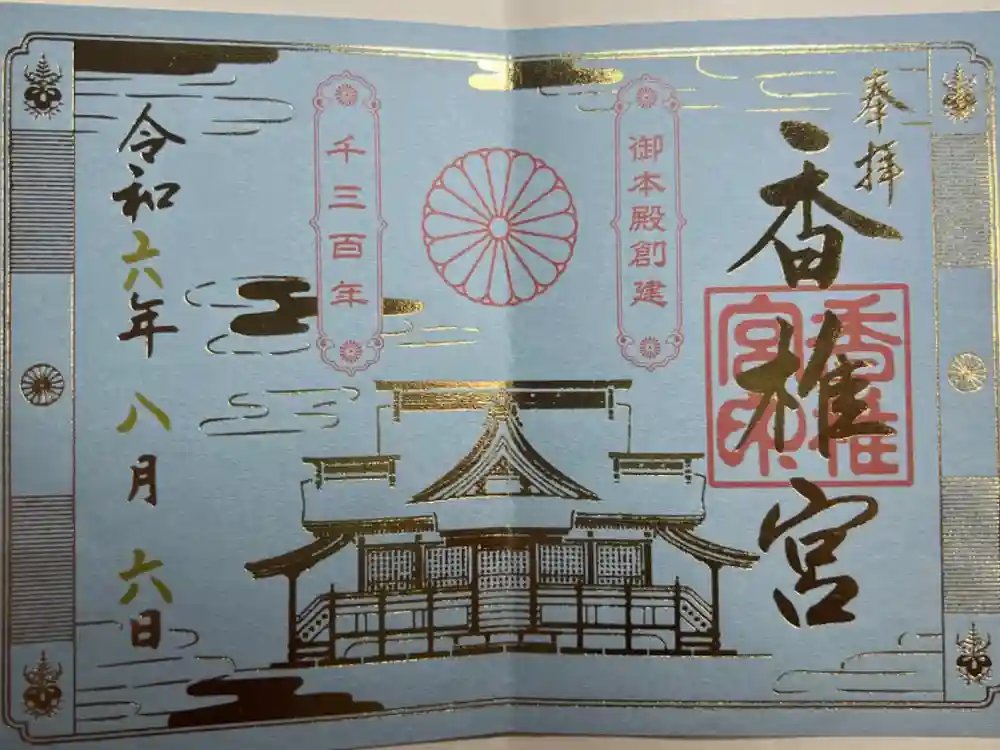 奉拝
香椎宮
香椎宮印
御本殿創建
千三百年
令和六年八月六日